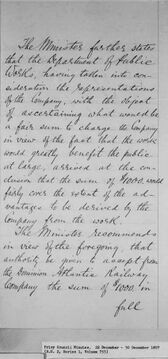 The Minister further states
that the Department of Public
Works, having taken into con-
sideration the representations
of the Company, with the object
of ascertaining what would be
a fair sum to charge the Company
in view of the fact that the work
would greatly benefit the public
at large, arrived at the con-
clusion that the sum of $1000. would
fairly cover the extent of the ad-
vantages to be derived by the
Company from the work.
The Minister recommends
in view of the foregoing, that
authority be given to accept from
the Dominion Atlantic Railway
Company the sum of $1000. in
full
Privy Council Minutes, 22 December - 30 December 1897
(R.G. 2, Series 1, Volume 755)